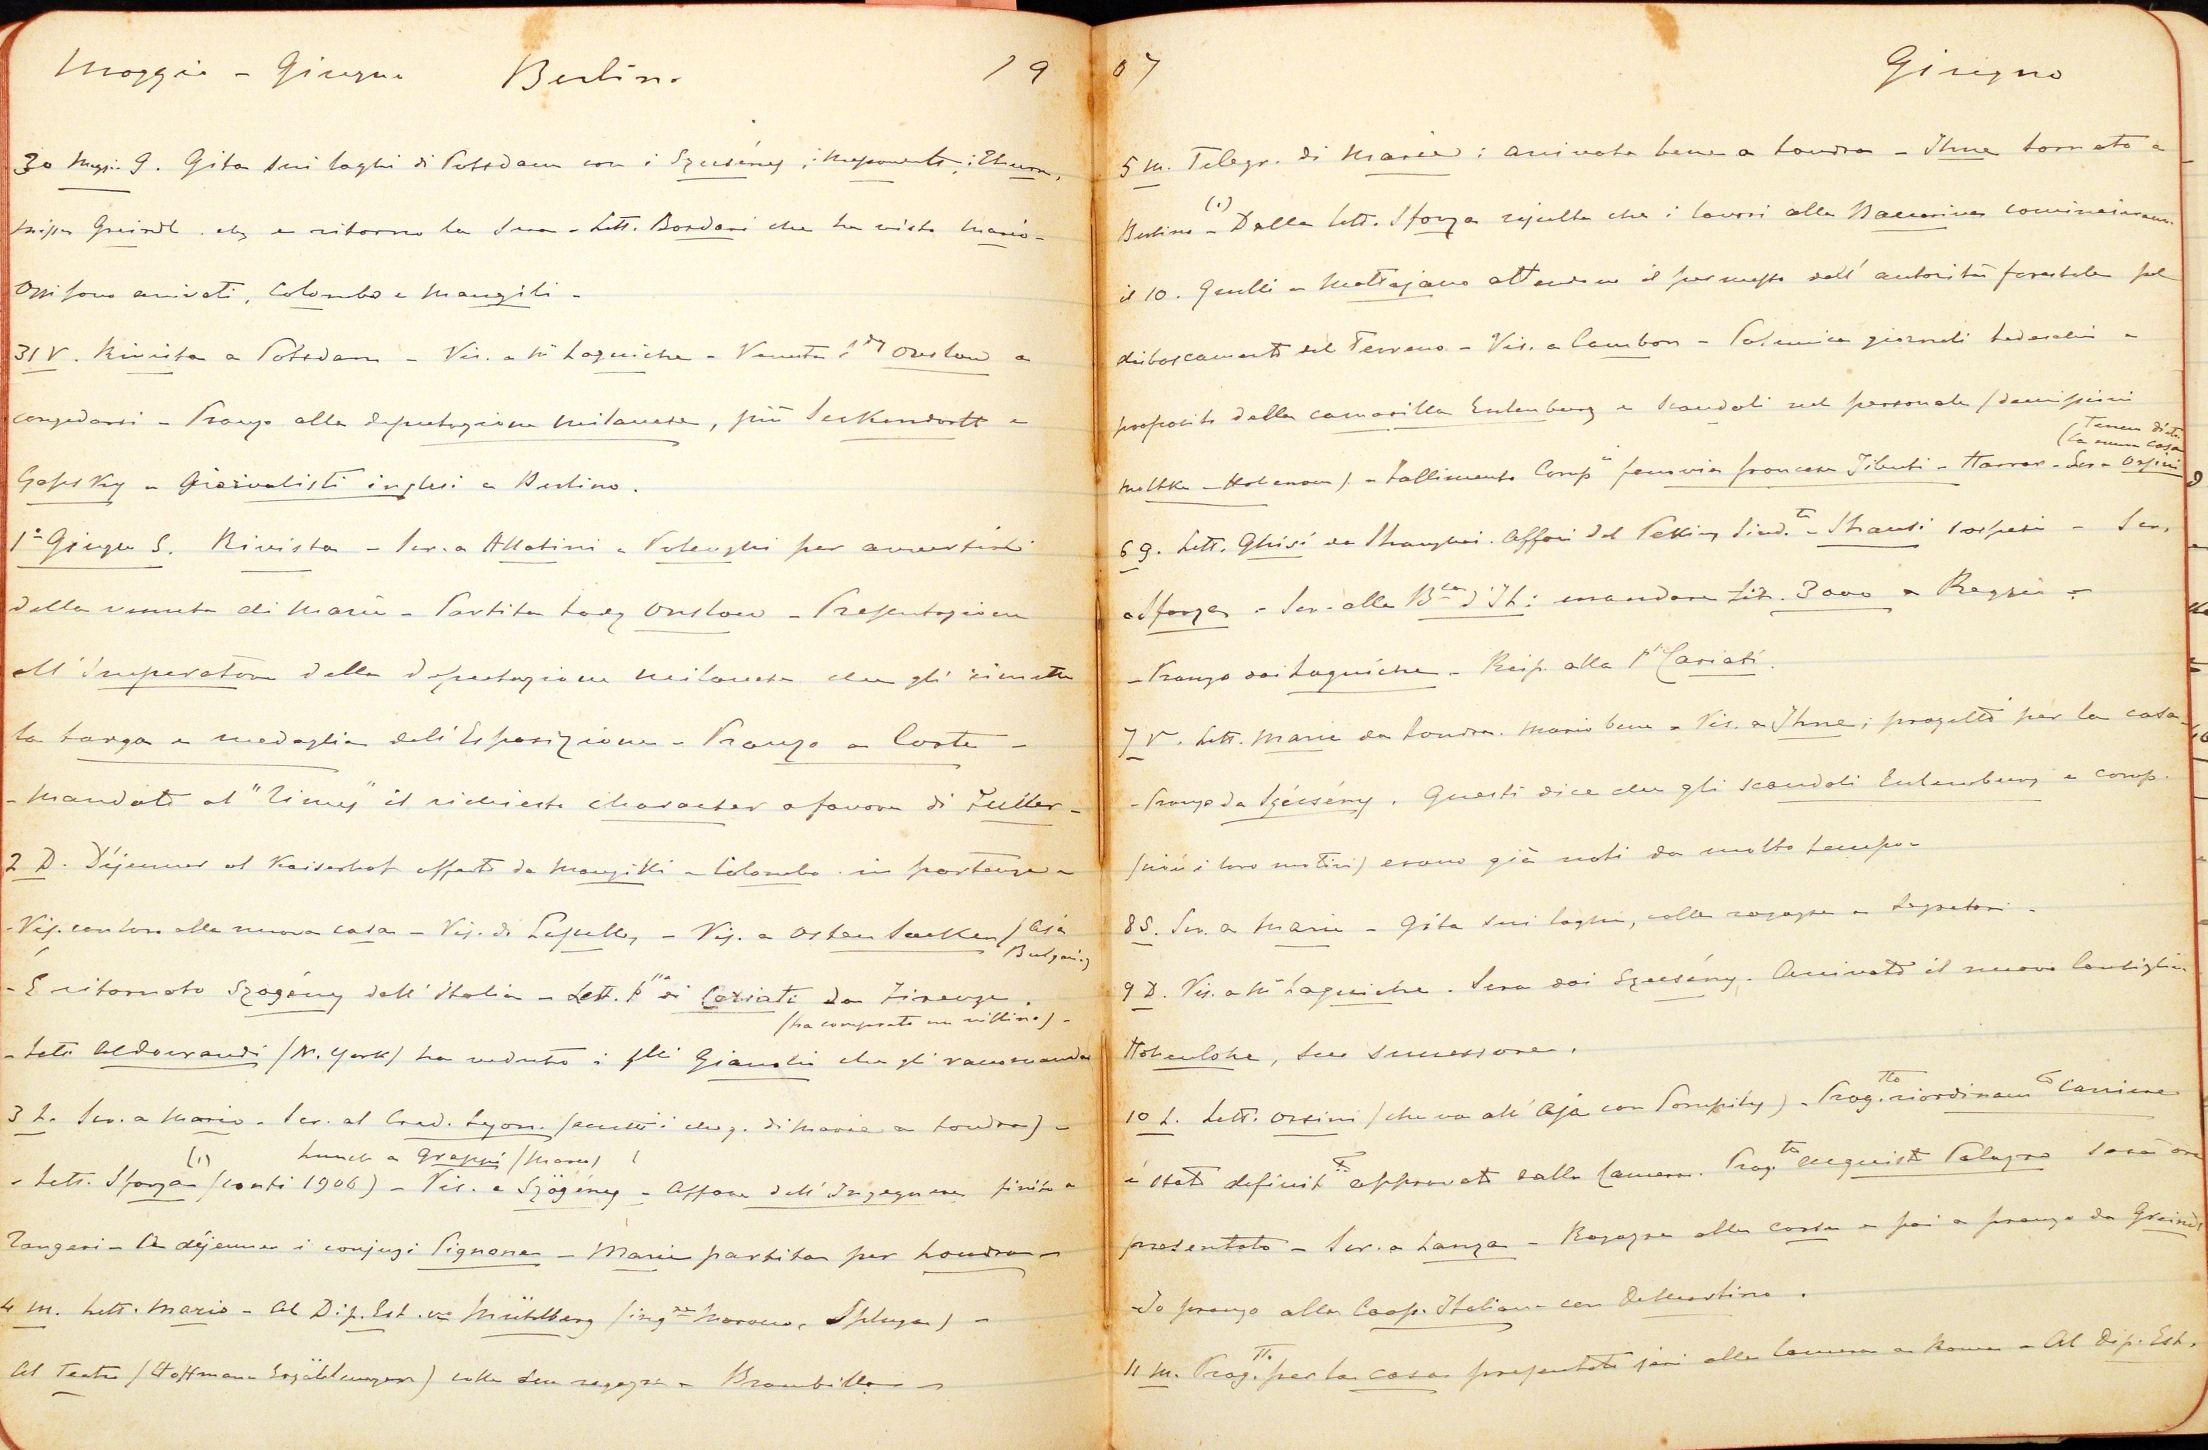 Maggio - Giugno Berlino 19
30 Magg. G. Gita sui laghi di Potsdam con i Szecsény, i
Greindl etc e ritorno la sera - Lett. Bordari che ha visto Mario -
Oggi sono arrivati, Colombo e Mangili -
31 V. Rivista a Potsdam - Vis. a Mme Laguiche - Venuta Ldy Onslow a
congedarsi - Pranzo alla deputazione milanese, più Seckendorff e
- Giornalisti inglesi a Berlino.
1° Giugno S. Rivista - Scr. a Allatini e Polenghi per avvertirli
della venuta di Marie - Partita Lady Onslow - Presentazione
all'Imperatore della deputazione milanese che gli rimette
la targa e medaglia dell'Esposizione - Pranzo a Corte -
- Mandato al "Times" il richiesto character a favore di Fuller -
2 D. Déjeuner al Kaiserhof offerto da Mangilli e Colombo in partenza -
- Vis. con loro alla nuova casa - Vis. di - Vis. a Osten Sacken (Aja
Bulgaria)
- È ritornato Szögény dall'Italia - Lett. Pssa di Cariati da Firenze.
(ha comprato un villino) -
- Lett. Aldovrandi (N. York) ha veduto i flli Gianoli che gli raccomandai
3 L. Scr. a Mario - Scr. al Cred. Lyon. di Marie a Londra) -
(1) Lunch a Greppi (Mario)
- Lett. Sforza (conti 1906) - Vis. a Szögény - Affare dell'Ingegnere finito a
Tangeri - A déjeuner i conjugi Pignone - Marie partita per Londra -
4 M. Lett. Mario - Al Dip. Est. da Mühlberg (ingre Marocco, Spluga) -
Al Teatro (Hoffmann Erzählungen) colle due ragazze e Brambilla -
07 Giugno
5 M. Telegr. di Marie: arrivata bene a Londra - Ihne tornato a
(1)
Berlino - Dalla lett. Sforza risulta che i lavori alla cominciarono
il 10. Quelli a Mottajano attendono il permesso dell'autorità forestale pel
disboscamento del Terreno - Vis. a Cambon - Polemica giornali tedeschi a
proposito della camarilla Eulenburg e scandali nel personale (demissioni
(la nuova casa
Moltke - Hohenau) - Fallimento Compa ferrovia francese Jibuti - Harrar - Scr. a Orsini
6 G. Lett. Ghisi da Shanghai. Affari del Peking Sindto - Shansi sospesi - Scr.
a Sforza - Scr. alla Bca d'It: mandare Lit. 3000 a Reggio -
- Pranzo dai Laguiche - Risp. alla Pssa Cariati.
7 V. Lett. Marie da Londra. Mario bene - Vis. a Ihne; progetti per la casa -
- Pranzo da Szécsény. Questi dice che gli scandali Eulenburg e comp.
(cioè i loro motivi) erano già noti da molto tempo -
8 S. Scr. a Marie - Gita sui laghi, colle ragazze e segretari -
9 D. Vis. a Mme Laguiche. Sera dai Szecsény. Arrivato il nuovo Consigliere
Hohenlohe, suo successore.
10 L. Lett. Orsini (che va all'Aja con Pompilj) - Progtto riordinamto carriere
è stato definitte approvato dalla Camera. Progtto acquisto Palazzo sarà ora
presentato - Scr. a Lanza - Ragazze alle corse e poi a pranzo da Greindl
- Io pranzo alla Coop. Italiana con Demartino.
11 M. Progtto per la casa presentato jeri alla Camera a Roma - Al Dip. Est.